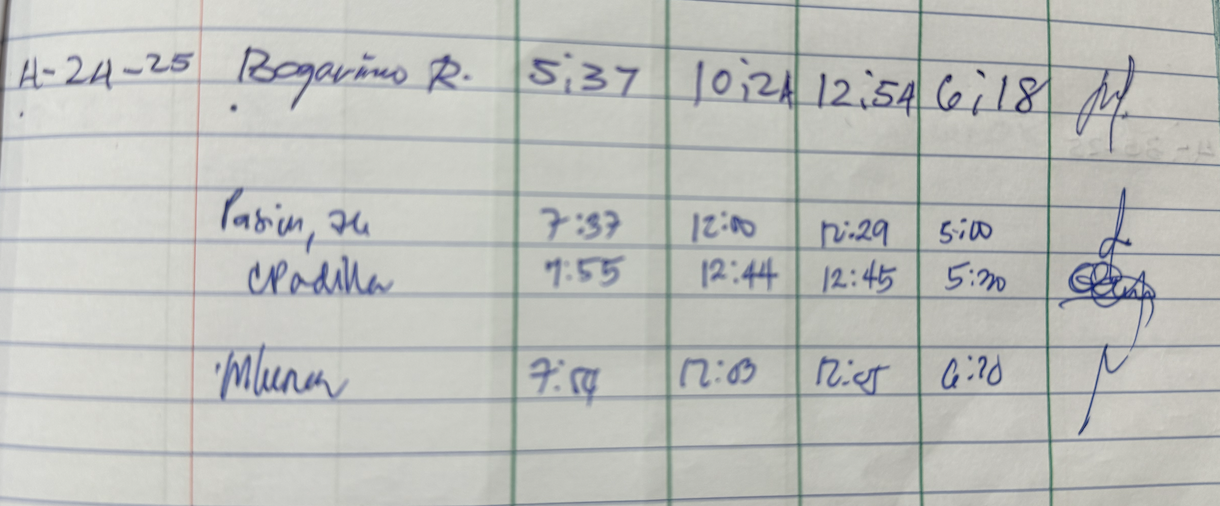 4-24-25 Bogarino R. 5:37 10:24 12:54 6:18
Pasion, 7:37 12:00 12:29 5:00
CPadilla 7:55 12:44 12:45 5:30
7:54 12:03 12:05 6:20